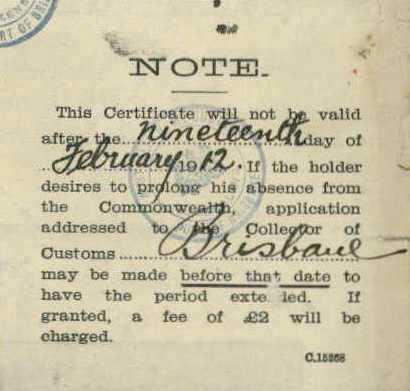 NOTE.
This Certificate will not be valid
after the nineteenth day of
February 1912. If the holder
desires to prolong his absence from
the Commonwealth, application
addressed to the Collector of
Customs Brisbane
may be made before that date to
have the period exte led. If
granted, a fee of £2 will be
charged.
C.15268